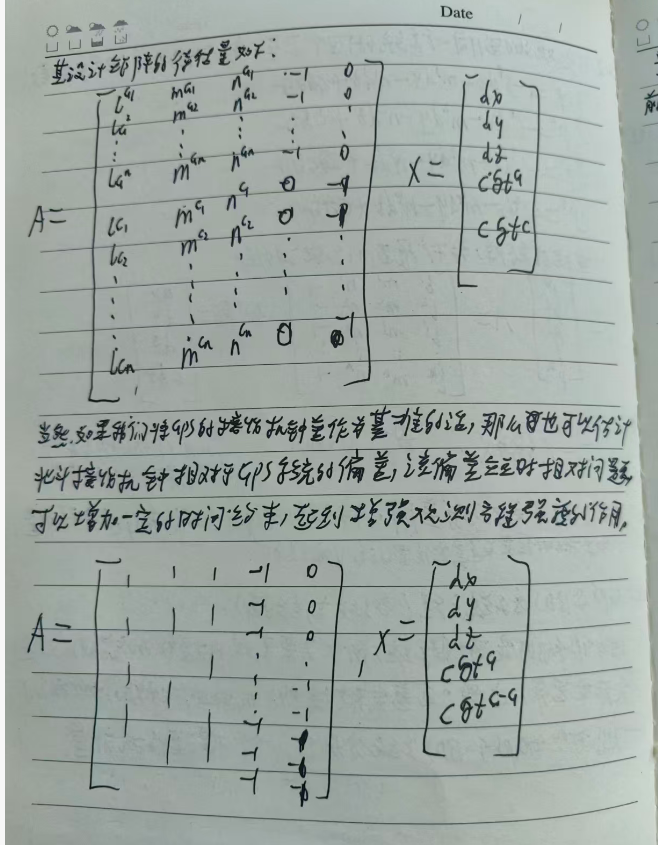 Date
其设计矩阵的待估量如下:
A= [ l^{G1} m^{G1} n^{G1} -1 0
l^{G2} m^{G2} n^{G2} -1 0
⋮ ⋮ ⋮ ⋮ ⋮
l^{Gn} m^{Gn} n^{Gn} -1 0
l^{C1} m^{C1} n^{C1} 0 -1
l^{C2} m^{C2} n^{C2} 0 -1
⋮ ⋮ ⋮ ⋮ ⋮
l^{Cn} m^{Cn} n^{Cn} 0 -1 ]
X= [ dx
dy
dz
cδt^G
cδt^C ]
当然,如果我们将GPS的接收机钟差作为基准的话,那么也可以估计
北斗接收机钟相对于GPS系统的偏差,该偏差会
可以增加一定的时间约束,起到增强观测方程强度的作用.
A= [ 1 1 1 -1 0
1 1 1 -1 0
-1 0
1 1 1 ⋮ ⋮
1 1 1 -1
-1
-1 ] , X= [ dx
dy
dz
cδt^G
cδt^{C-G} ]